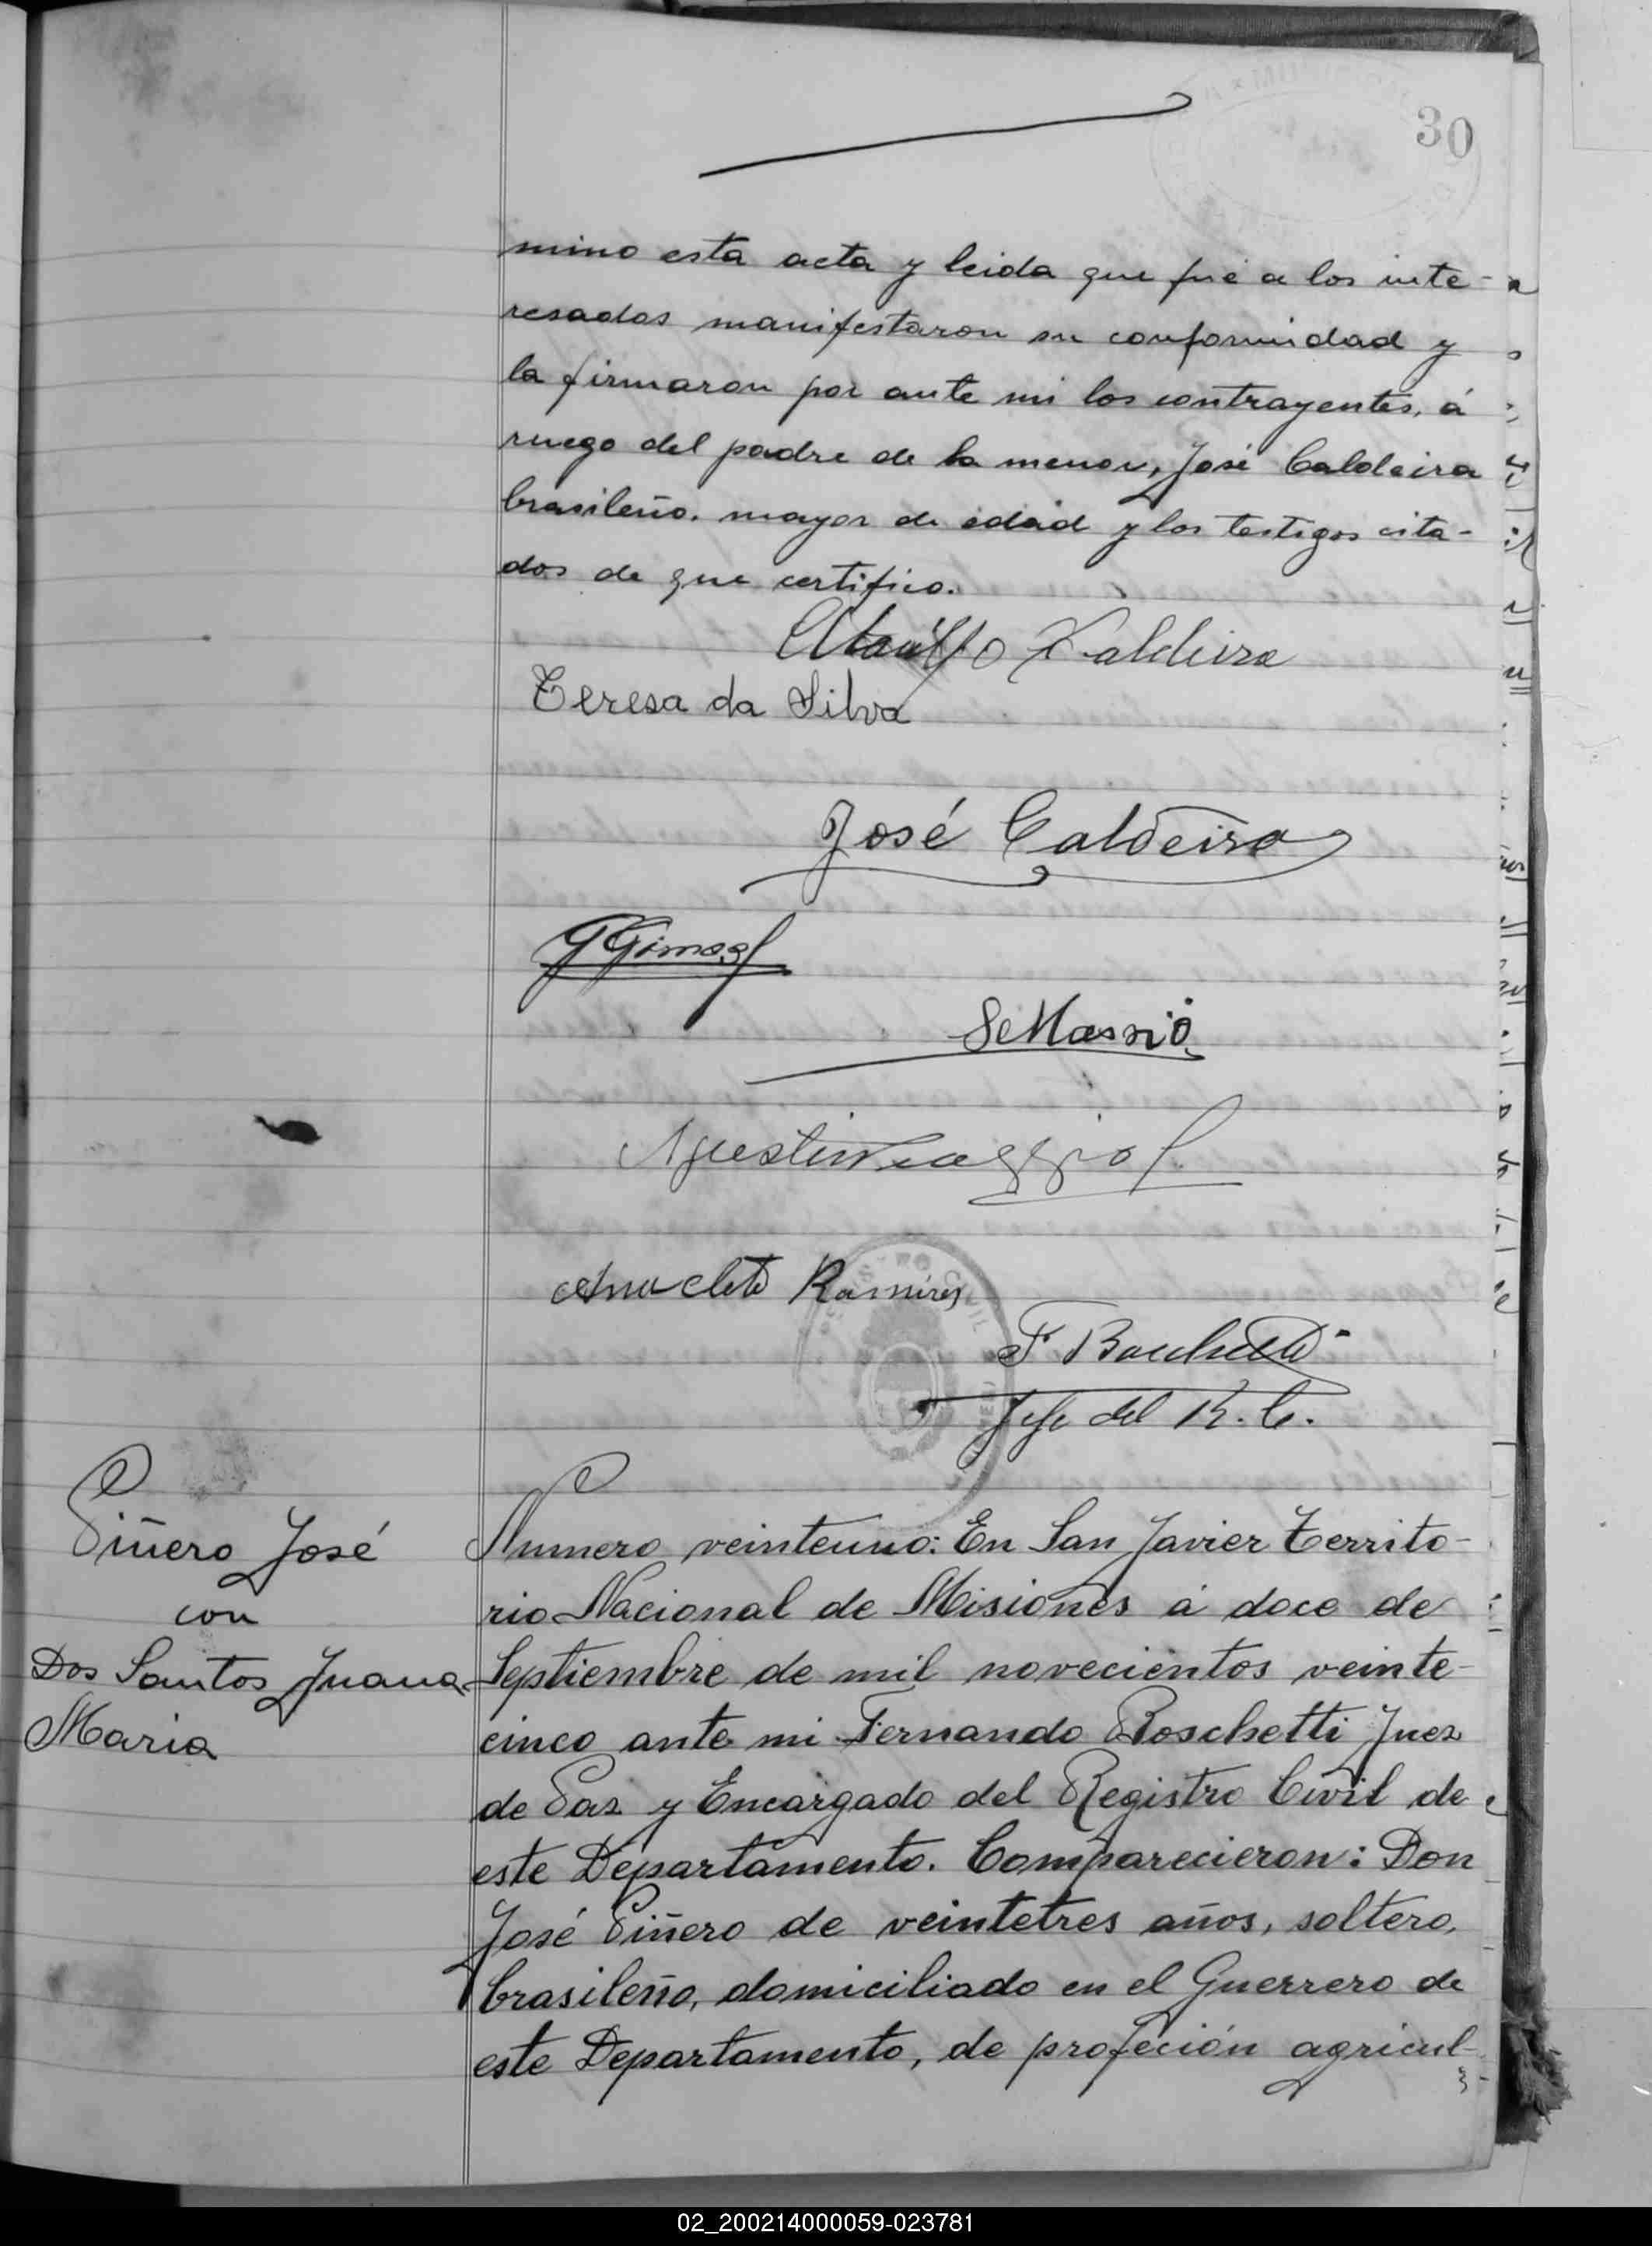 30
mino esta acta y leida que fué a los inte-
resados manifestaron su conformidad y
la firmaron por ante mi los contrayentes, á
ruego del padre de la menor, José Caldeira
brasileño, mayor de edad y los testigos cita-
dos de que certifico.
Ataúlfo Kaldeira
Teresa da Silva
José Caldeira
Agustin
Anacleto Ramires
F Boschetti
Jefe del R. C.
Piñero José
con
Dos Santos Juana
Maria
Numero veinteuno: En San Javier Territo-
rio Nacional de Misiones á doce de
Septiembre de mil novecientos veinte-
cinco ante mi Fernando Boschetti Juez
de Paz y Encargado del Registro Civil de
este Departamento. Comparecieron: Don
José Piñero de veintetres años, soltero,
brasileño, domiciliado en el Guerrero de
este Departamento, de profeción agricul-
02_200214000059-023781